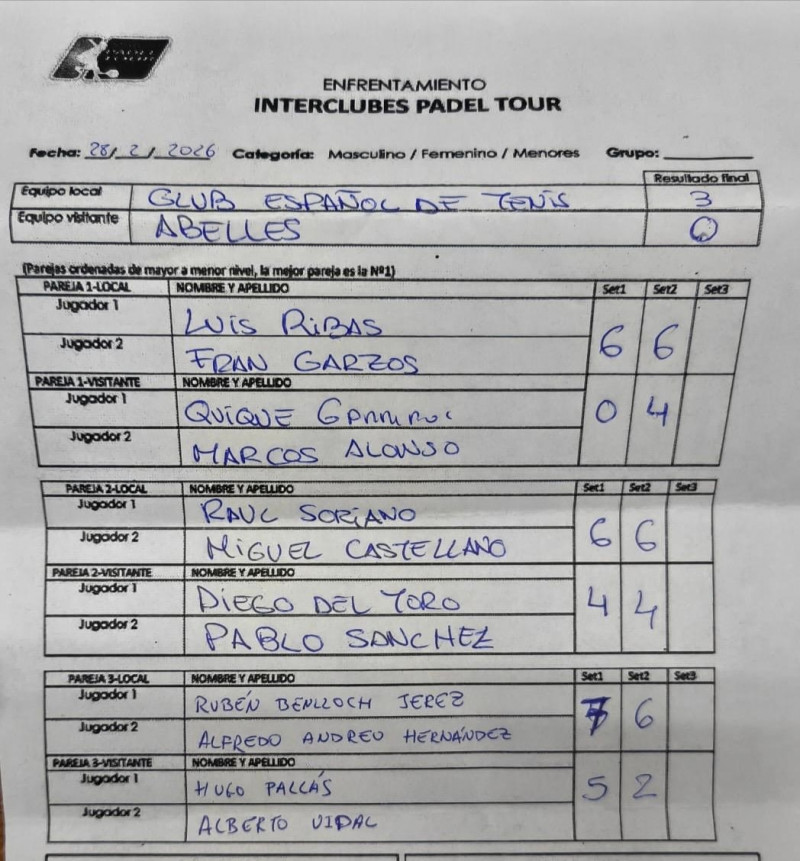 PADEL TOUR
ENFRENTAMIENTO
INTERCLUBES PADEL TOUR
Fecha: 28/ 2 / 2026 Categoría: Masculino / Femenino / Menores Grupo:
Resultado final
Equipo local CLUB ESPAÑOL DE TENIS 3
Equipo visitante ABELLES 0
(Parejas ordenadas de mayor a menor nivel, la mejor pareja es la Nº1)
PAREJA 1-LOCAL NOMBRE Y APELLIDO Set1 Set2 Set3
Jugador 1 LUIS RIBAS
Jugador 2 FRAN GARZOS
6 6
PAREJA 1-VISITANTE NOMBRE Y APELLIDO
Jugador 1 QUIQUE
Jugador 2 MARCOS ALONSO
0 4
PAREJA 2-LOCAL NOMBRE Y APELLIDO Set1 Set2 Set3
Jugador 1 RAUL SORIANO
Jugador 2 MIGUEL CASTELLANO
6 6
PAREJA 2-VISITANTE NOMBRE Y APELLIDO
Jugador 1 DIEGO DEL TORO
Jugador 2 PABLO SANCHEZ
4 4
PAREJA 3-LOCAL NOMBRE Y APELLIDO Set1 Set2 Set3
Jugador 1 RUBÉN BENLLOCH JEREZ
Jugador 2 ALFREDO ANDREU HERNÁNDEZ
7 6
PAREJA 3-VISITANTE NOMBRE Y APELLIDO
Jugador 1 HUGO PALLÁS
Jugador 2 ALBERTO VIDAL
5 2